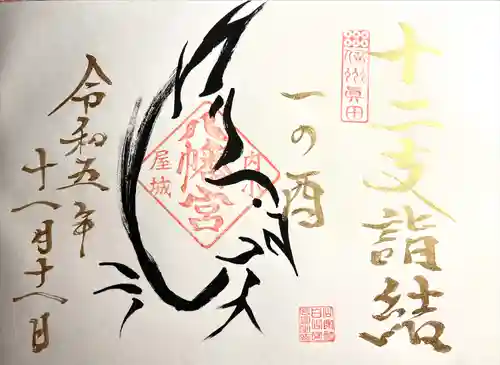 十二支詣結
信州眞田
一の酉
八幡宮
内小
屋城
令和五年
十一月十一日